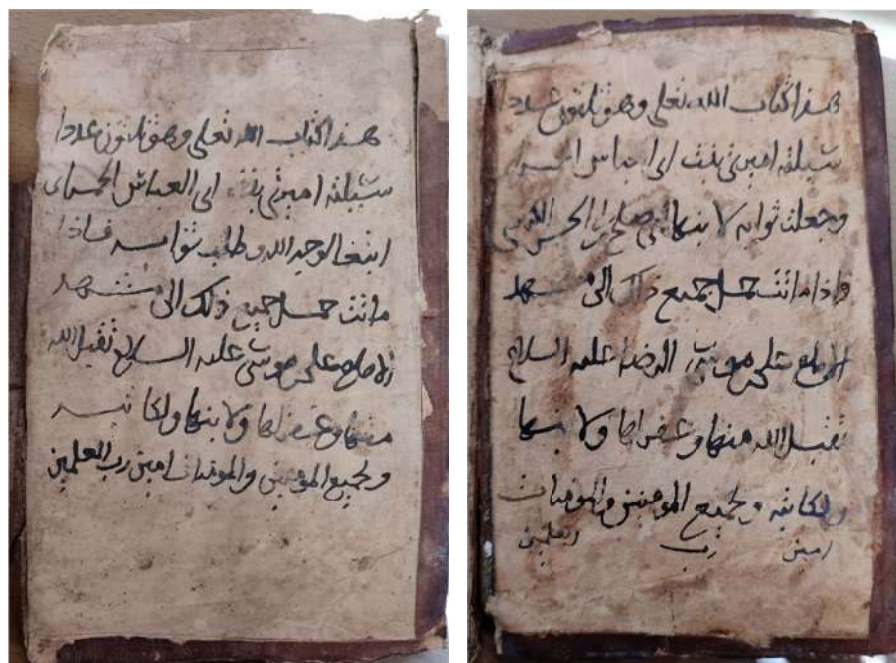 هذا كتاب الله تعلى وهو ثلثون عددا
سبلته اميرتى بنت ابى العباس
ابتغا لوجه الله وطلب ثوابه فاذا
ماتت حمل جميع ذلك الى مشهد
الامام على بن موسى عليه السلام تقبل الله
منها وغفر لها ولابنها ولكاتبه
ولجميع المومنين والمومنات امين رب العلمين
هذا كتاب الله تعلى وهو ثلثون عددا
سبلته اميرتى بنت ابى
وجعلت ثوابه لابنها ابى صلح بن الحسن
واذا ماتت حمل جميع ذلك الى مشهد
على بن موسى الرضا عليه السلام
تقبل الله منها وغفر لها ولابنها
ولكاتبه ولجميع المومنين والمومنات
امين رب العلمين